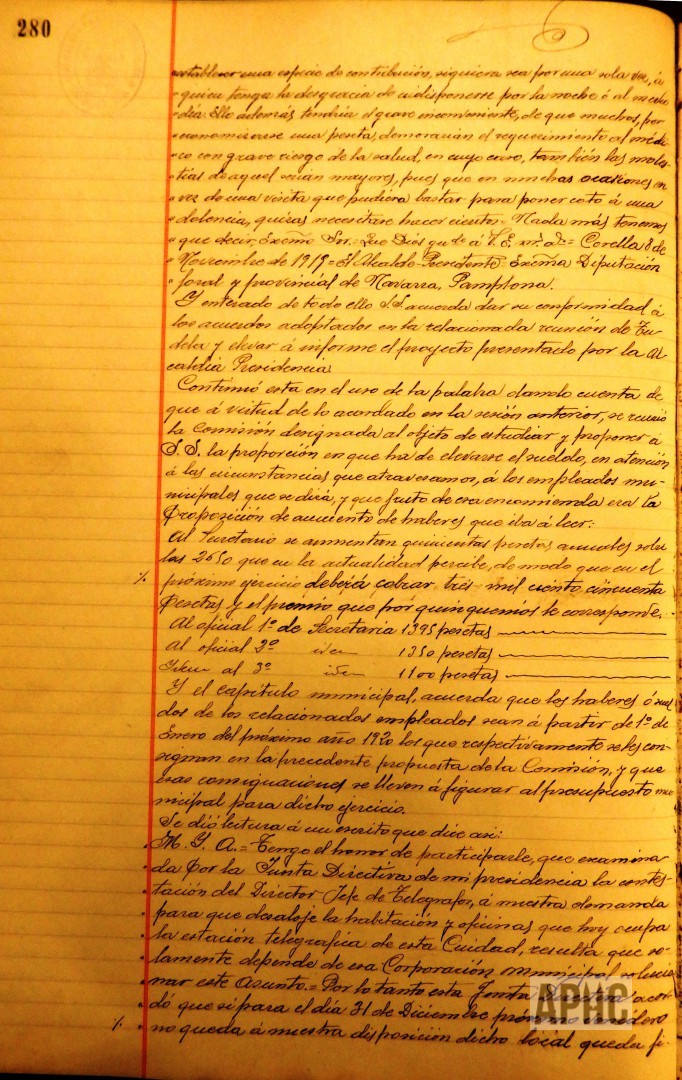 280
establecer una especie de contribución, siquiera sea por una sola vez, á
" quien tenga la desgracia de indisponerse por la noche ó al medio
" día. Ello además tendría el grave inconveniente, de que muchos, por
" economizarse una peseta, demorarían el requerimiento al médi-
" co con grave riesgo de la salud, en cuyo caso, también las moles-
" tias de aquel serían mayores, pues que en muchas ocasiones en
" vez de una visita que pudiera bastar para poner coto á una
" dolencia, quizas necesitase hacer cientos. Nada más tenemos
" que decir, Excmo Sor.= Que Dios gu de á V. E. ms. as.= Corella 8 de
" Noviembre de 1919= El Alcalde-Presidente= Excma Diputación
" foral y provincial de Navarra, Pamplona.
Y enterado de todo ello S.S. acuerda dar su conformidad á
los acuerdos adoptados en la relacionada reunión de Tu-
dela y elevar á informe el proyecto presentado por la Al
caldía Presidencia
Continuó esta en el uso de la palabra dando cuenta de
que á virtud de lo acordado en la sesión anterior, se reunió
la Comisión designada al objeto de estudiar y proponer á
S.S. la proporción en que ha de elevarse el sueldo, en atención
á las circunstancias que atravesamos, á los empleados mu-
nicipales que se dirá, y que fruto de esa encomienda era la
proposición de aumento de haberes que iba á leer:
Al Secretario se aumentan quinientas pesetas anuales sobre
las 2650 que en la actualidad percibe, de modo que en el
% próximo ejercicio deberá cobrar tres mil ciento cincuenta
pesetas, y el premio que por quinquenios le corresponde.
Al oficial 1º de Secretaria 1395 pesetas
Al oficial 2º idem 1350 pesetas
Idem al 3º idem 1100 pesetas
Y el capítulo municipal, acuerda que los haberes ó suel
dos de los relacionados empleados sean á partir de 1º de
Enero del próximo año 1920 los que respectivamente se les con-
signan en la precedente propuesta de la Comisión, y que
esas consignaciones se lleven á figurar al presupuesto mu
nicipal para dicho ejercicio.
Se dió lectura á un escrito que dice asi:
" M. Y. A.= Tengo el honor de participarle, que examina
" da por la Junta Directiva de mi presidencia la contes-
" tación del Director Jefe de Telegrafos, á nuestra demanda
" para que desaloje la habitación y oficinas que hoy ocupa
" la estación telegrafica de esta Cuidad, resulta que so-
" lamente depende de esa Corporación Municipal solucio
" nar este asunto.= Por lo tanto esta Junta Directiva acor
" dó que si para el día 31 de Diciembre próximo venidero
% " no queda á nuestra disposición dicho local queda fi-
APHC